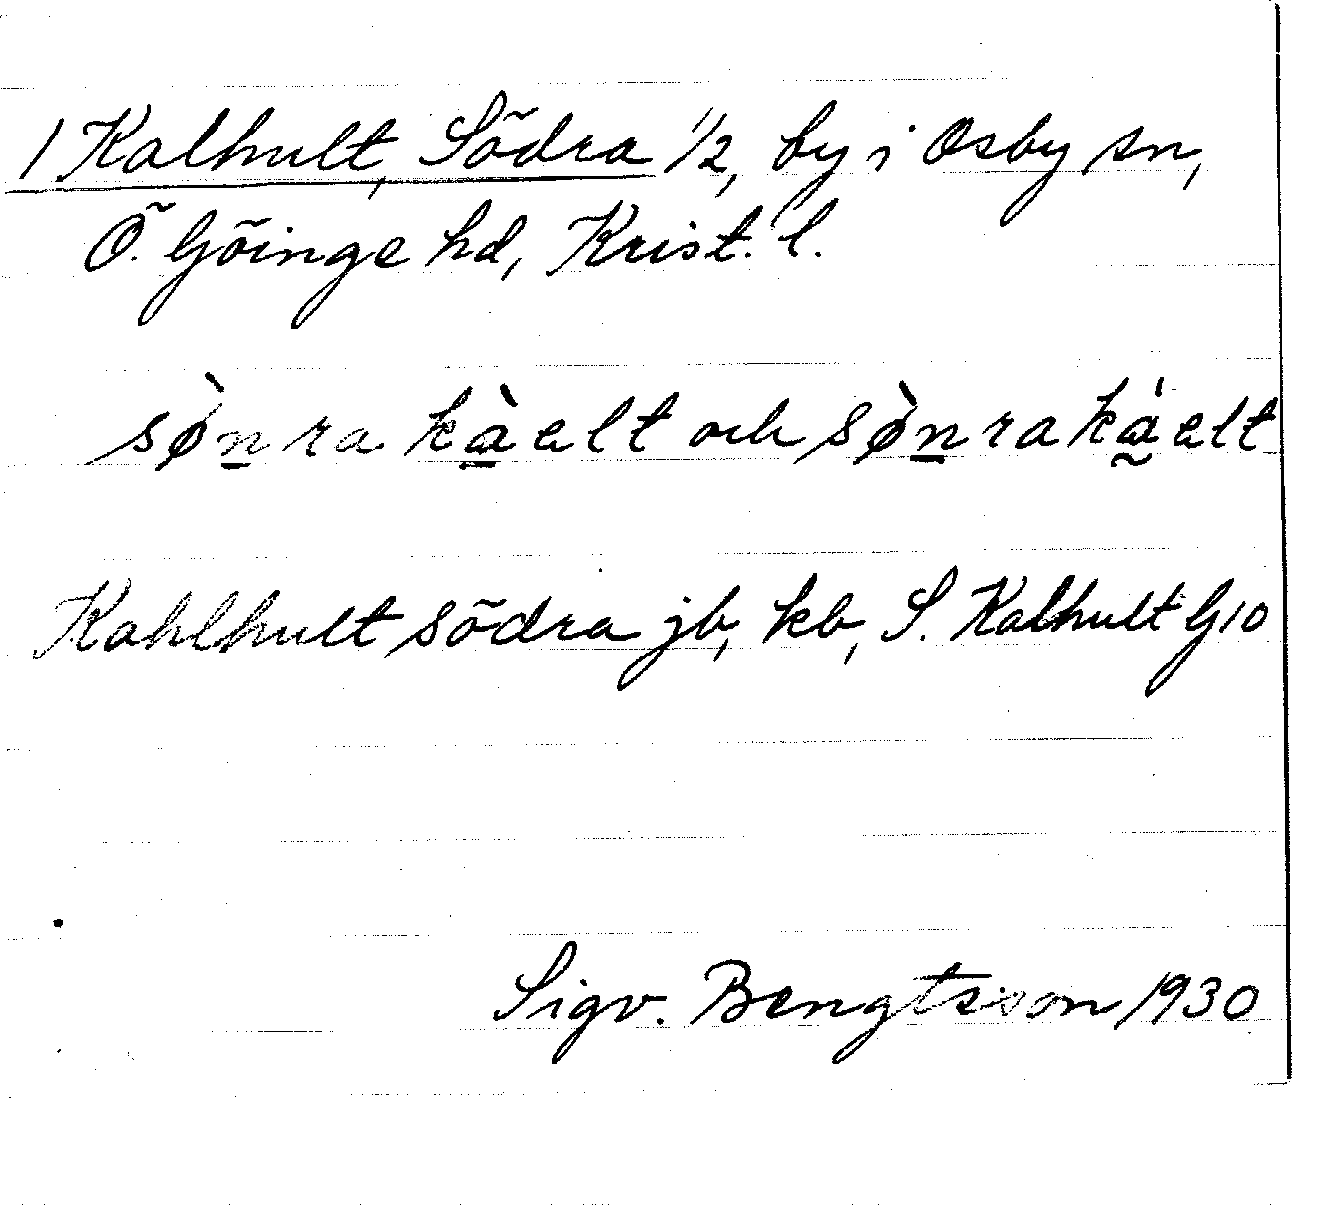 1 Kalhult, Södra 1/2, by i Osby sn,
Ö. Göinge hd, Krist. l.
sø̀n̲ra kà̲elt och sø̀n̲raká̰elt
Kahlhult södra jb, kb, S. Kalhult G10
Sigv. Bengtsson 1930